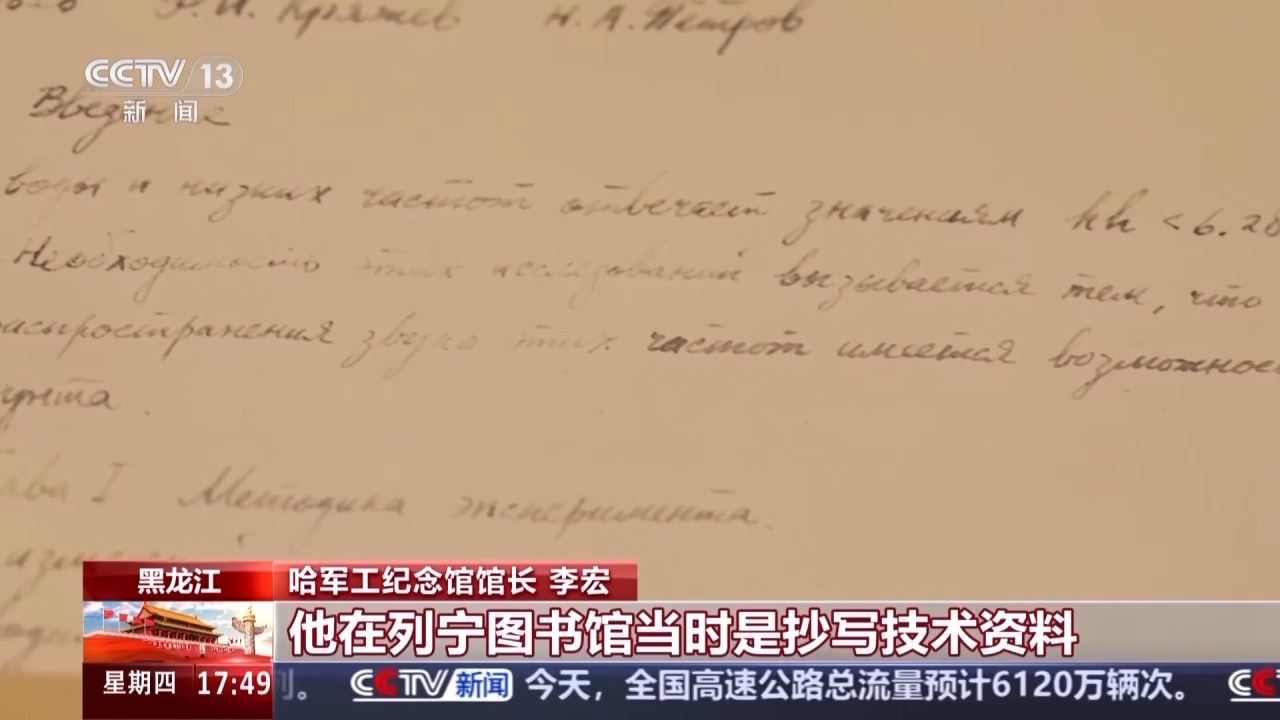 Н. А. Петров
CCTV 13
新闻
Введение
воды и низких частот отвечает значениям kh < 6.28
Необходимость этих исследований вызывается тем, что
распространения звука этих частот имеется
I Методика эксперимента.
黑龙江
哈军工纪念馆馆长 李宏
他在列宁图书馆当时是抄写技术资料
星期四 17:49
CCTV新闻 今天，全国高速公路总流量预计6120万辆次。